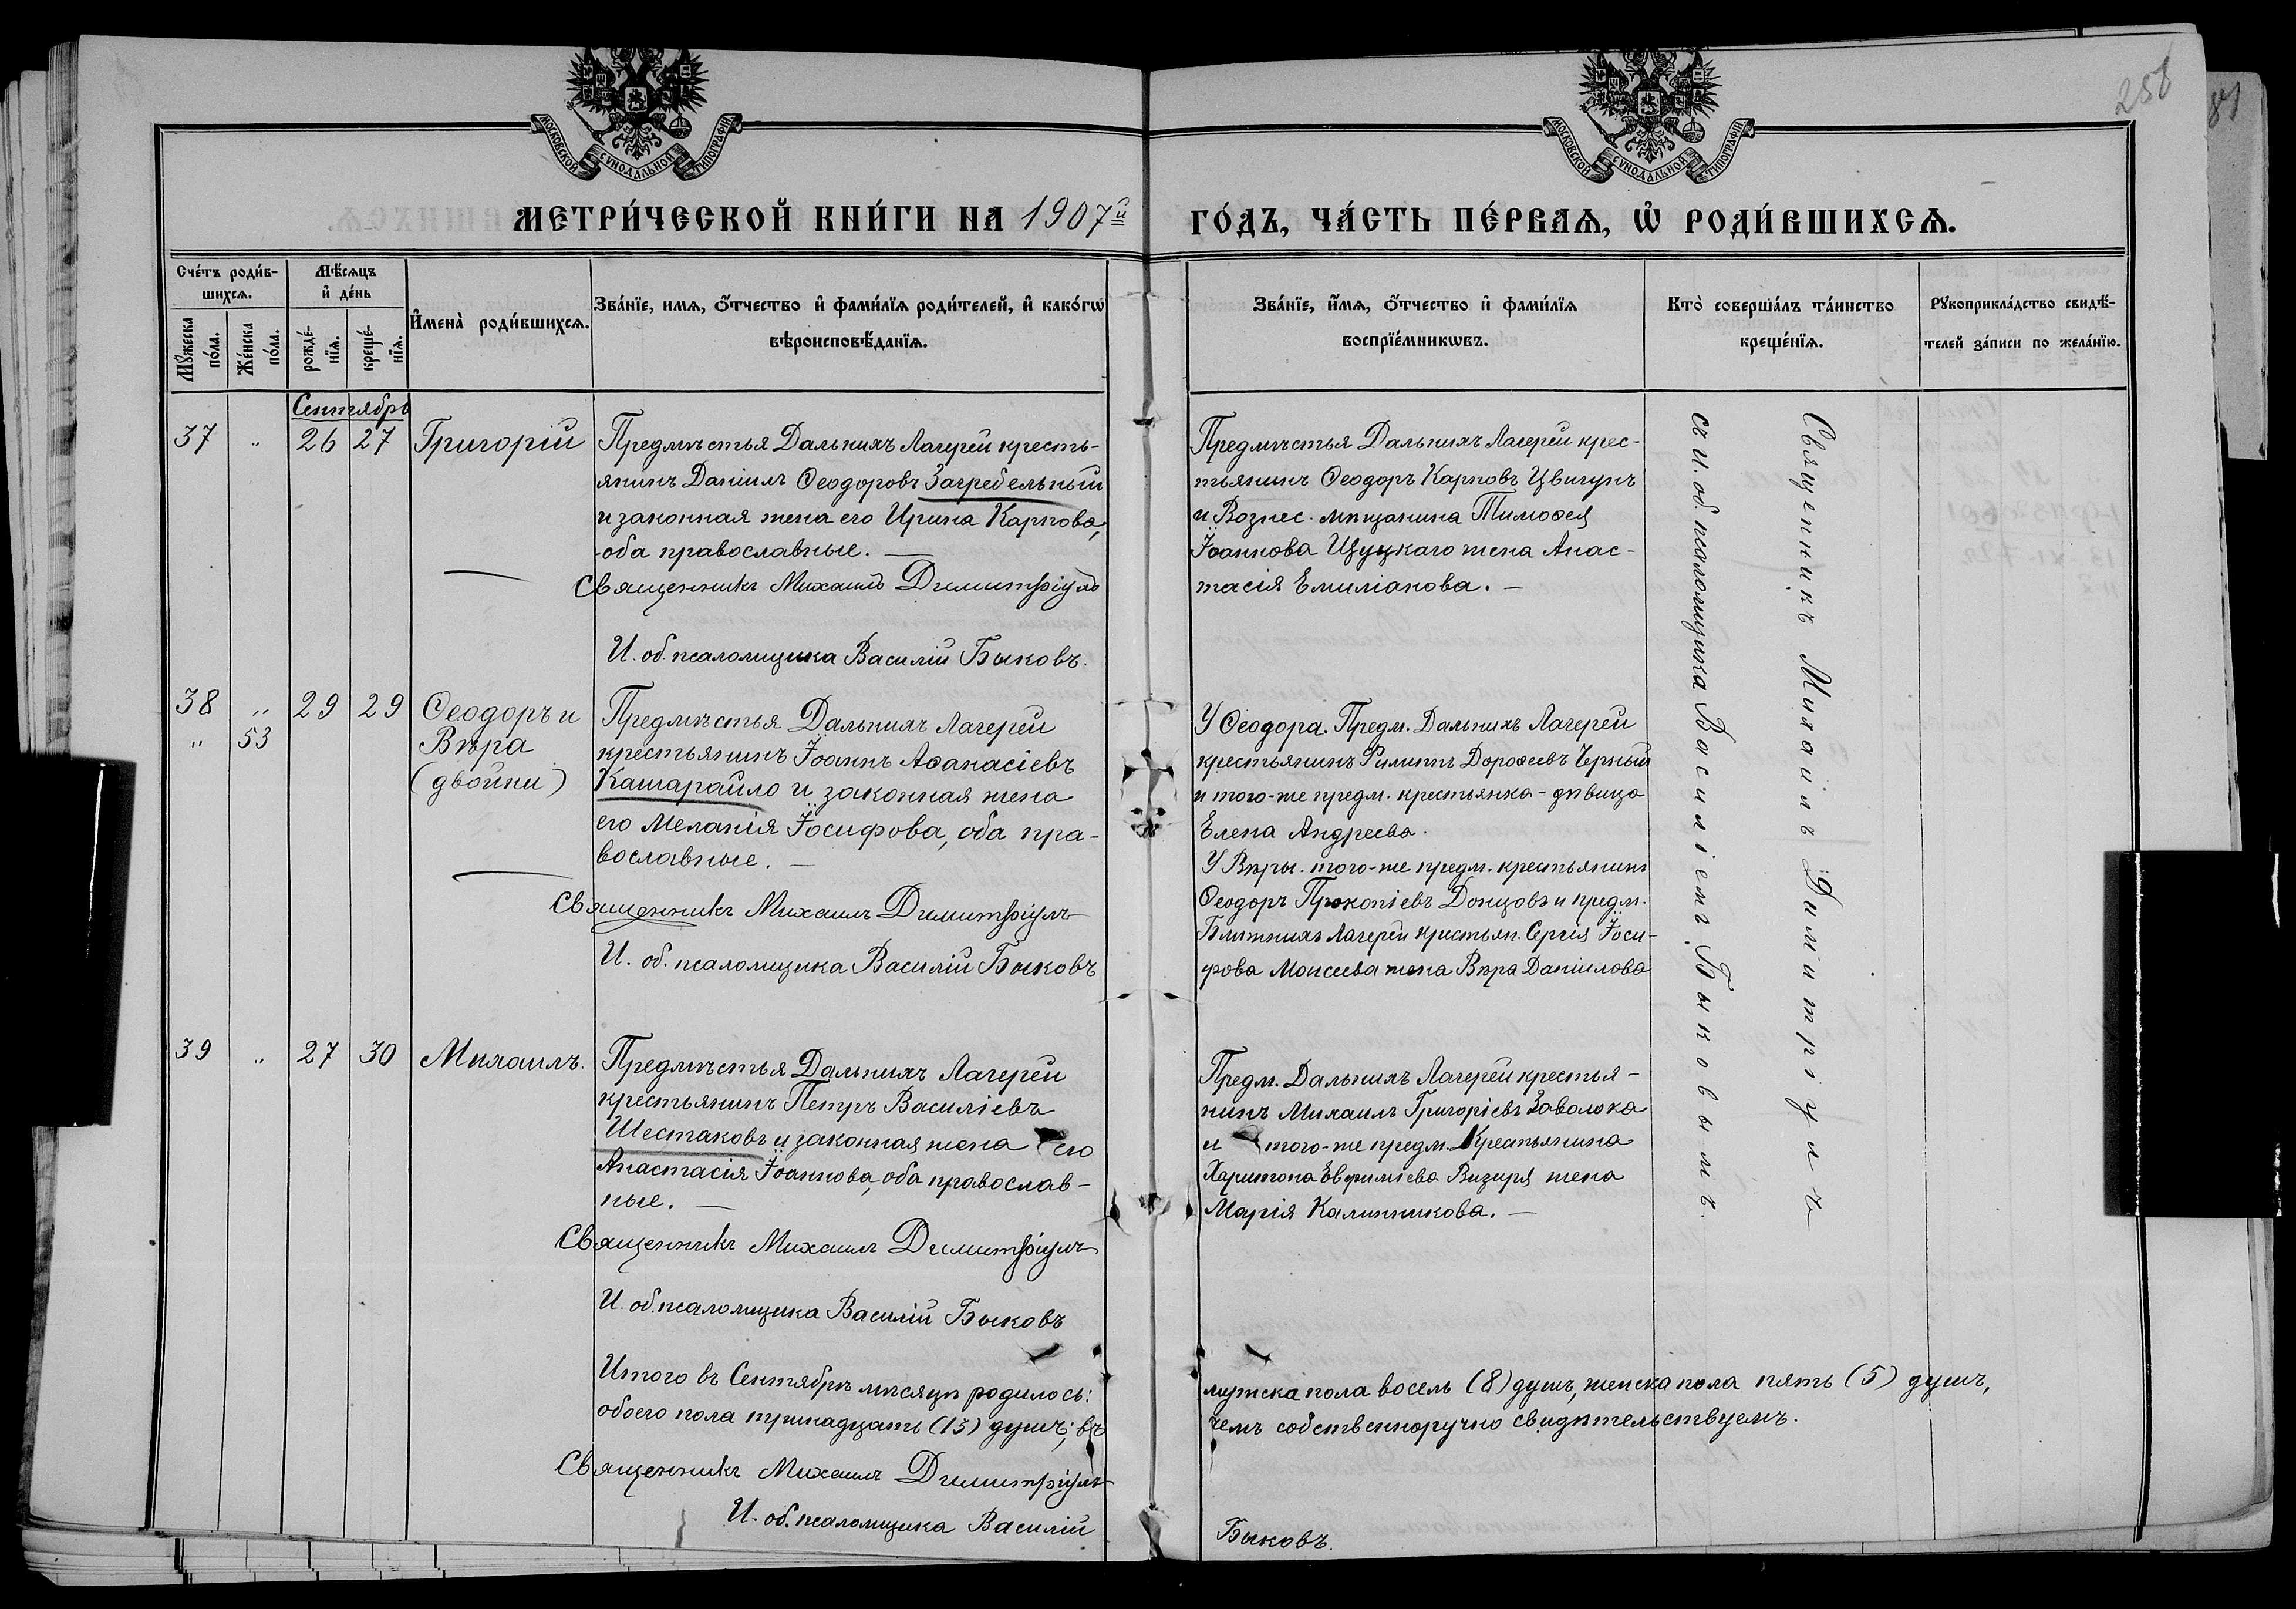 258
МОСКОВСКОЙ СѴНОДАЛЬНОЙ ТИПОГРАФІИ
МОСКОВСКОЙ СѴНОДАЛЬНОЙ ТИПОГРАФІИ
МЕТРИ́ЧЕСКОЙ КНИ́ГИ НА 1907й
ГО́ДЪ, ЧА́СТЬ ПЕ́РВАЯ, Ѡ҆ РОДИ́ВШИХСЯ.
Сче́тъ роди́в-
шихсѧ.
Мѣ́сѧцъ
и҆ де́нь
Мꙋ́жеска
по́ла.
Же́нска
по́ла.
рожде́-
нїѧ.
креще́-
нїѧ.
И҆мена̀ роди́вшихсѧ.
Зва́нїе, имѧ, ѻ҆́тчество и҆ фами́лїѧ роди́телей, и҆ како́гѡ
вѣроисповѣ́данїѧ.
Зва́нїе, и҆́мѧ, ѻ҆́тчество и҆ фами́лїѧ
воспрїе́мникѡвъ.
Кто̀ соверша́лъ та́инство
креще́нїѧ.
Рꙋкоприкла́дство свидѣ́-
телей за́писи по жела́нїю.
Сентябрь
37 " 26 27 Григорій
Предмѣстья Дальнихъ Лагерей кресть-
янинъ Даніилъ Ѳеодоровъ Загребельный
и законная жена его Ирина Карпова,
оба православные. —
Священникъ Михаилъ Димитріулъ
И. об. псаломщика Василій Быковъ.
Предмѣстья Дальнихъ Лагерей крес-
тьянинъ Ѳеодоръ Карповъ Цвигунъ
и Вознес. мѣщанина Тимоѳея
Іоаннова Щуцкаго жена Анас-
тасія Емиліанова. —
38 " 29 29 Ѳеодоръ и
" 53 Вѣра
(двойни)
Предмѣстья Дальнихъ Лагерей
крестьянинъ Іоаннъ Аѳанасіевъ
Кашарайло и законная жена
его Меланія Іосифова, оба пра-
вославные. —
Священникъ Михаилъ Димитріулъ
И. об. псаломщика Василій Быковъ
У Ѳеодора. Предм. Дальнихъ Лагерей
крестьянинъ Филиппъ Дороѳеевъ Черный
и того-же предм. крестьянка - дѣвица
Елена Андреева.
У Вѣры. того-же предм. крестьянинъ
Ѳеодоръ Прокопіевъ Донцовъ и предм.
Ближнихъ Лагерей крестьян. Сергія Іоси-
фова Моисеева жена Вѣра Даніилова
39 " 27 30 Михаилъ.
Предмѣстья Дальнихъ Лагерей
крестьянинъ Петръ Василіевъ
Шестаковъ и законная жена его
Анастасія Іоаннова, оба православ-
ные. —
Священникъ Михаилъ Димитріулъ
И. об. псаломщика Василій Быковъ
Предм. Дальнихъ Лагерей крестья-
нинъ Михаилъ Григоріевъ Заволока
и того-же предм. Крестьянина
Харитона Евфиміева Визиря жена
Марія Калинникова. —
Священникъ Михаилъ Димитріулъ
съ и. об. псаломщика Василіемъ Быковымъ.
Итого въ Сентябрѣ мѣсяцѣ родилось:
обоего пола тринадцать (13) душъ; въ
Священникъ Михаилъ Димитріулъ
И. об. псаломщика Василій
мужска пола восемь (8) душъ, женска пола пять (5) душъ,
чемъ собственноручно свидѣтельствуемъ.
Быковъ.